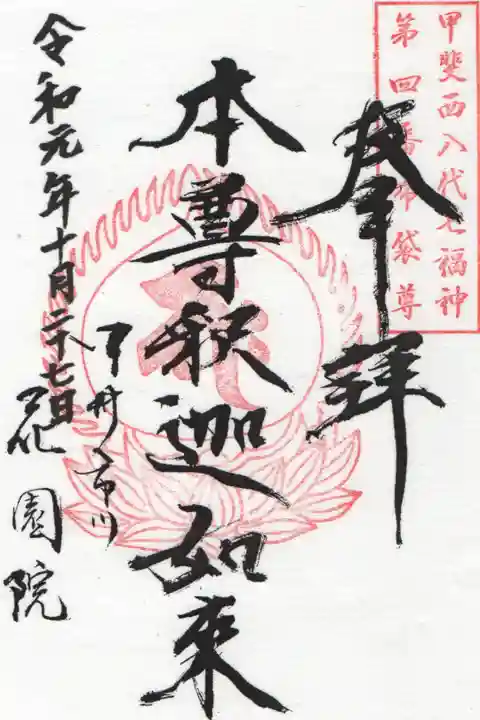 甲斐西八代七福神
第四番布袋尊
奉拝
本尊釈迦如来
甲州市川
花園院
令和元年十月二十七日